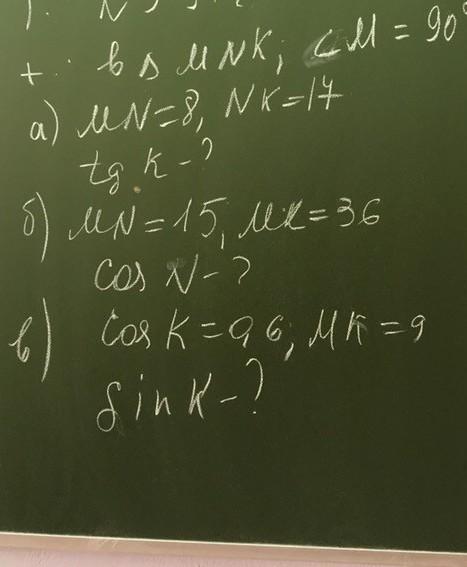 в Δ MNK; ∠M = 90°
а) MN=8, NK=17
tg K-?
б) MN=15, MK=36
cos N-?
в) cos K=0,6; MK=9
sin K-?